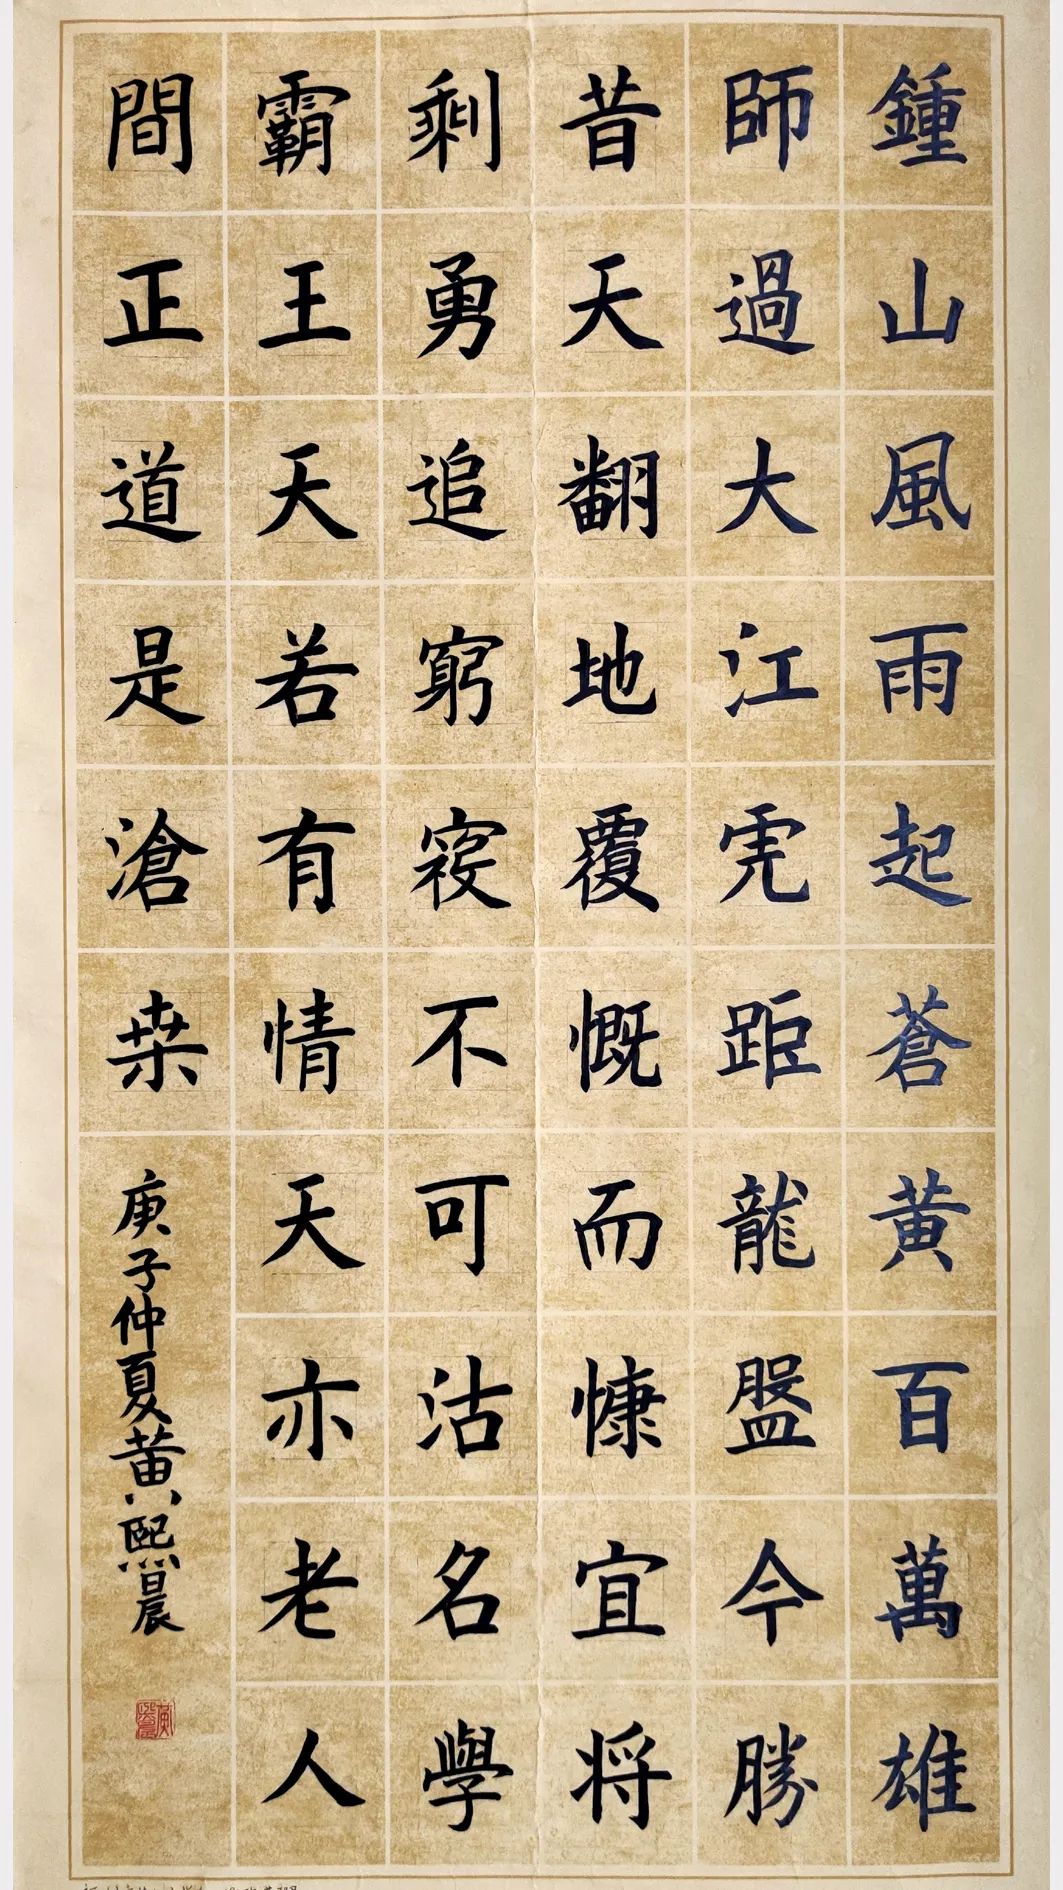 鍾山風雨起蒼黃百萬雄
師過大江虎距龍盤今勝
昔天翻地覆慨而慷宜将
剩勇追窮寇不可沽名學
霸王天若有情天亦老人
間正道是滄桒
庚子仲夏黃熙晨